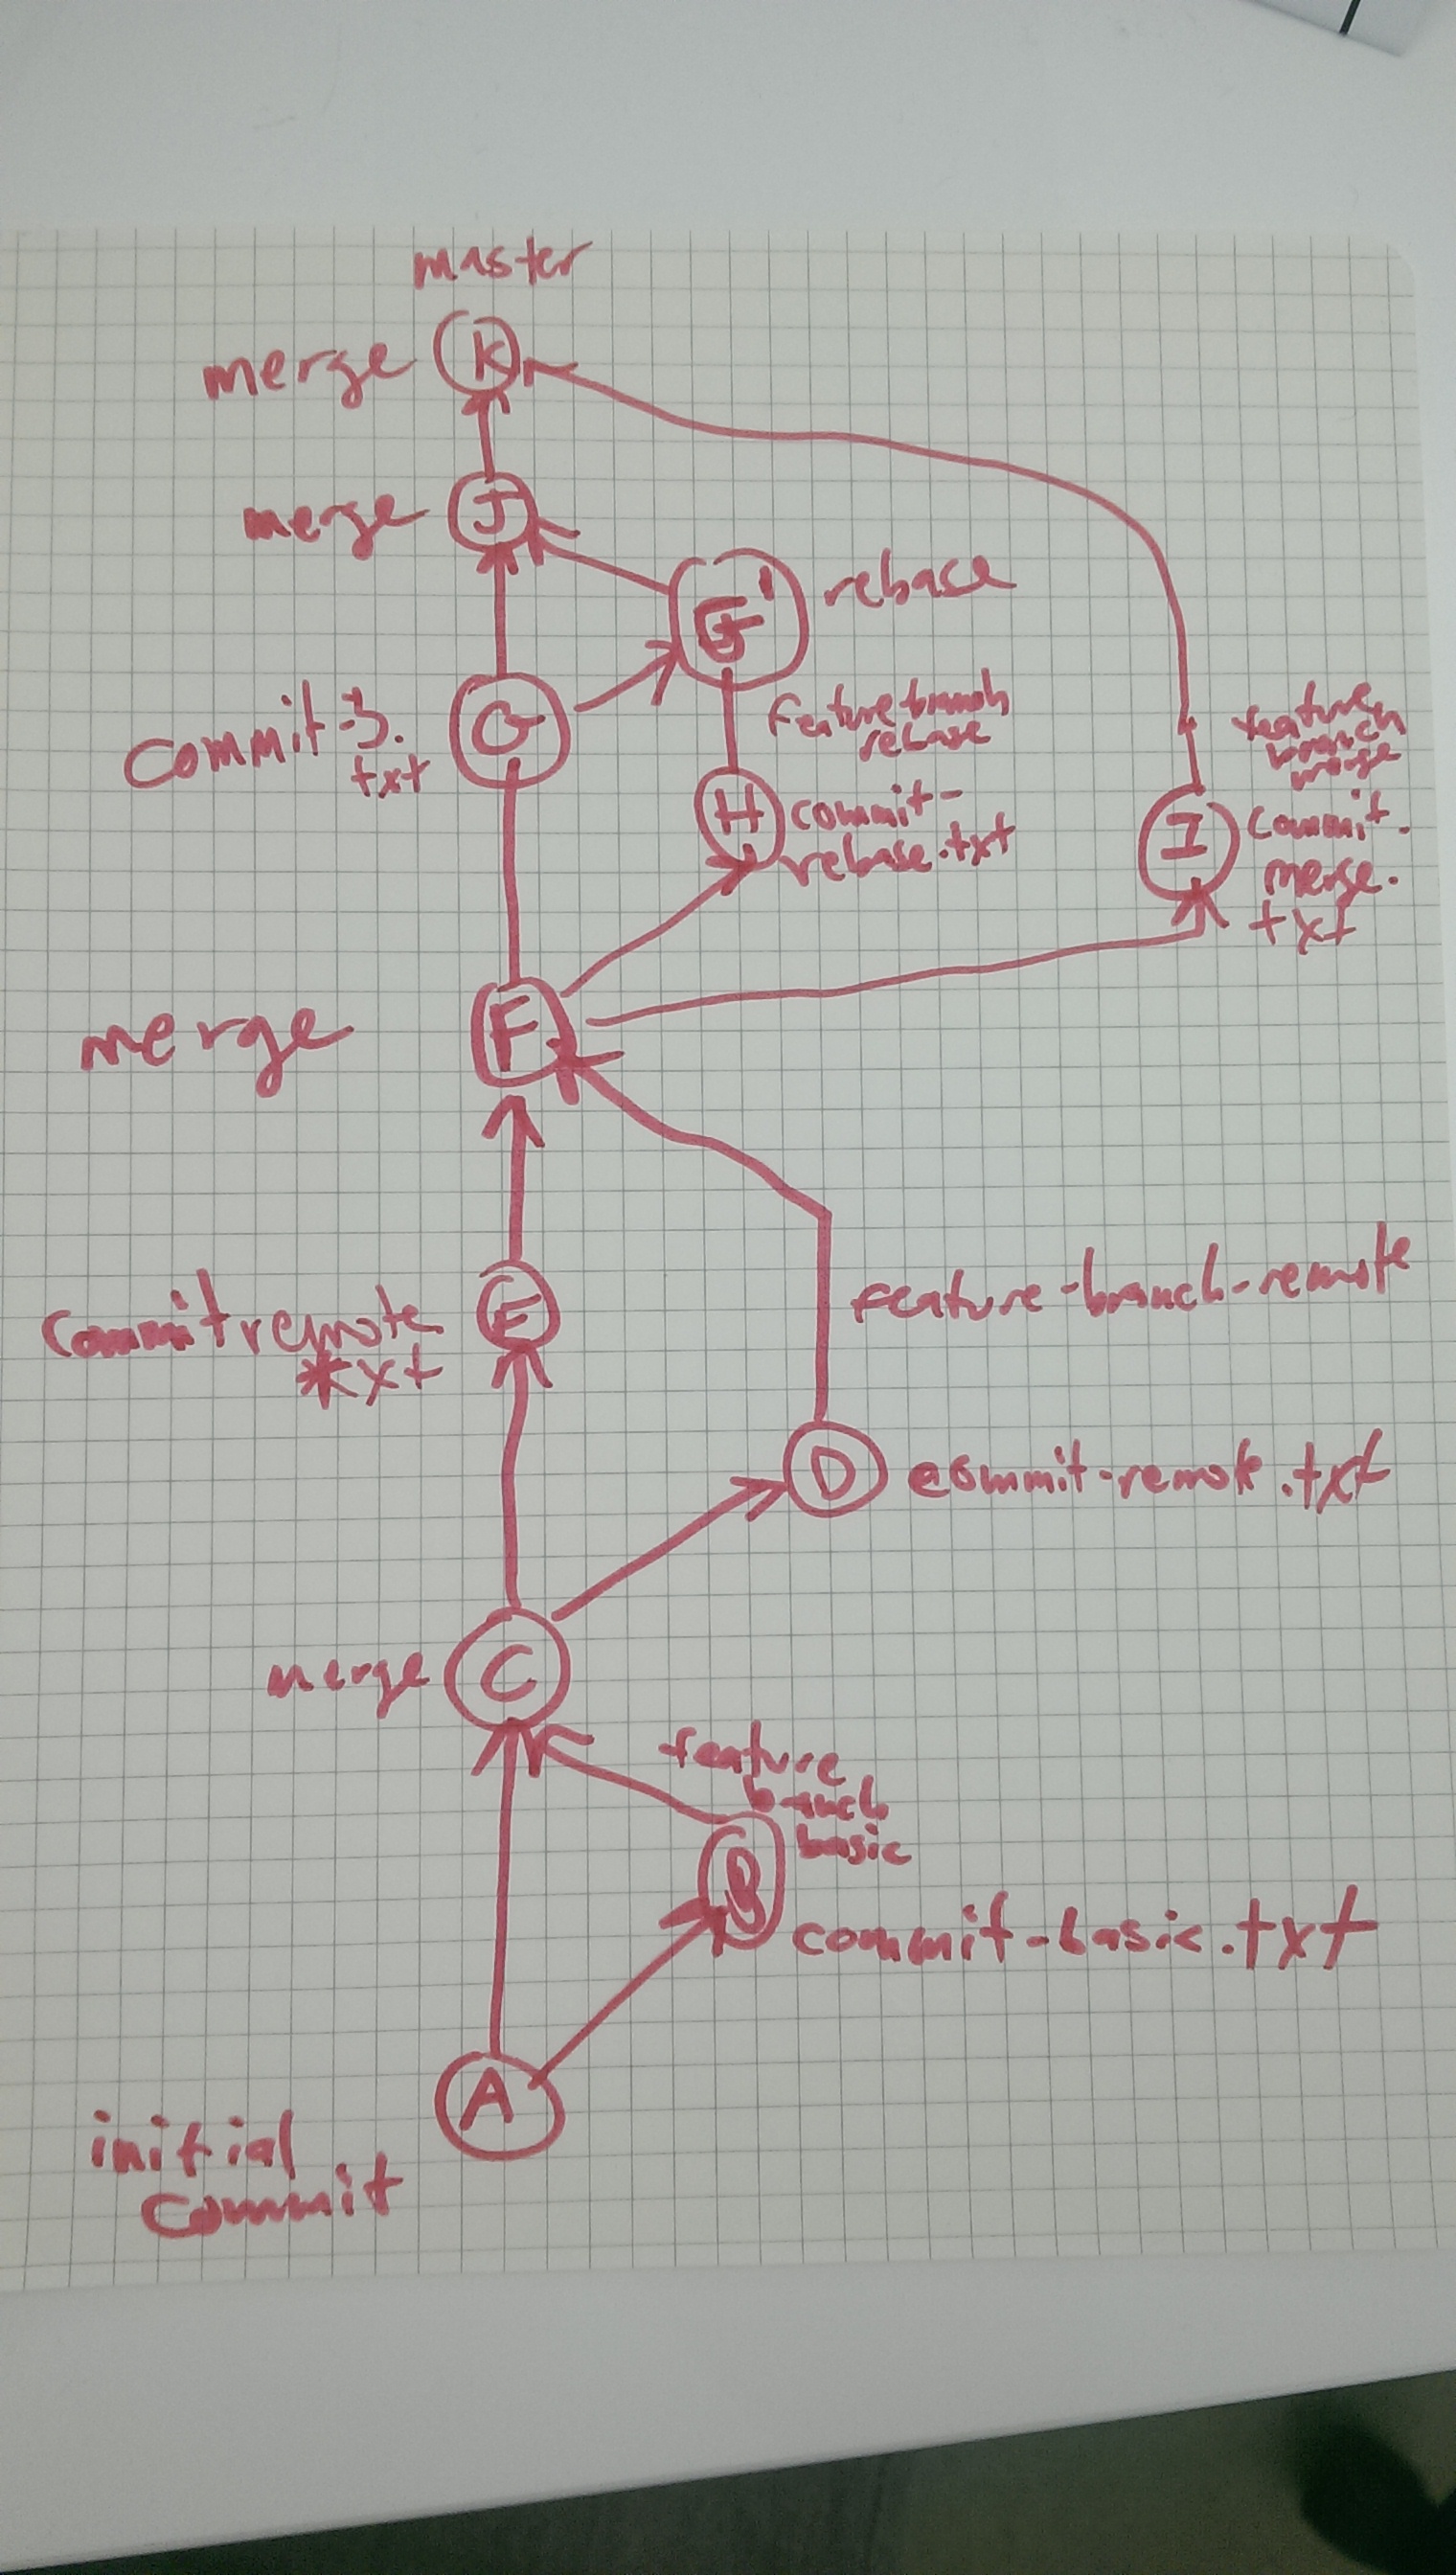 master
merge K
merge J
G' rebase
feature-branch
rebase
commit-3.
txt
G
feature
branch
merge
H commit-
rebase.txt
I commit-
merge.
txt
merge F
feature-branch-remote
commit remote
txt
E
D commit-remote.txt
merge C
feature
branch
basic
B
commit-basic.txt
A
initial
commit